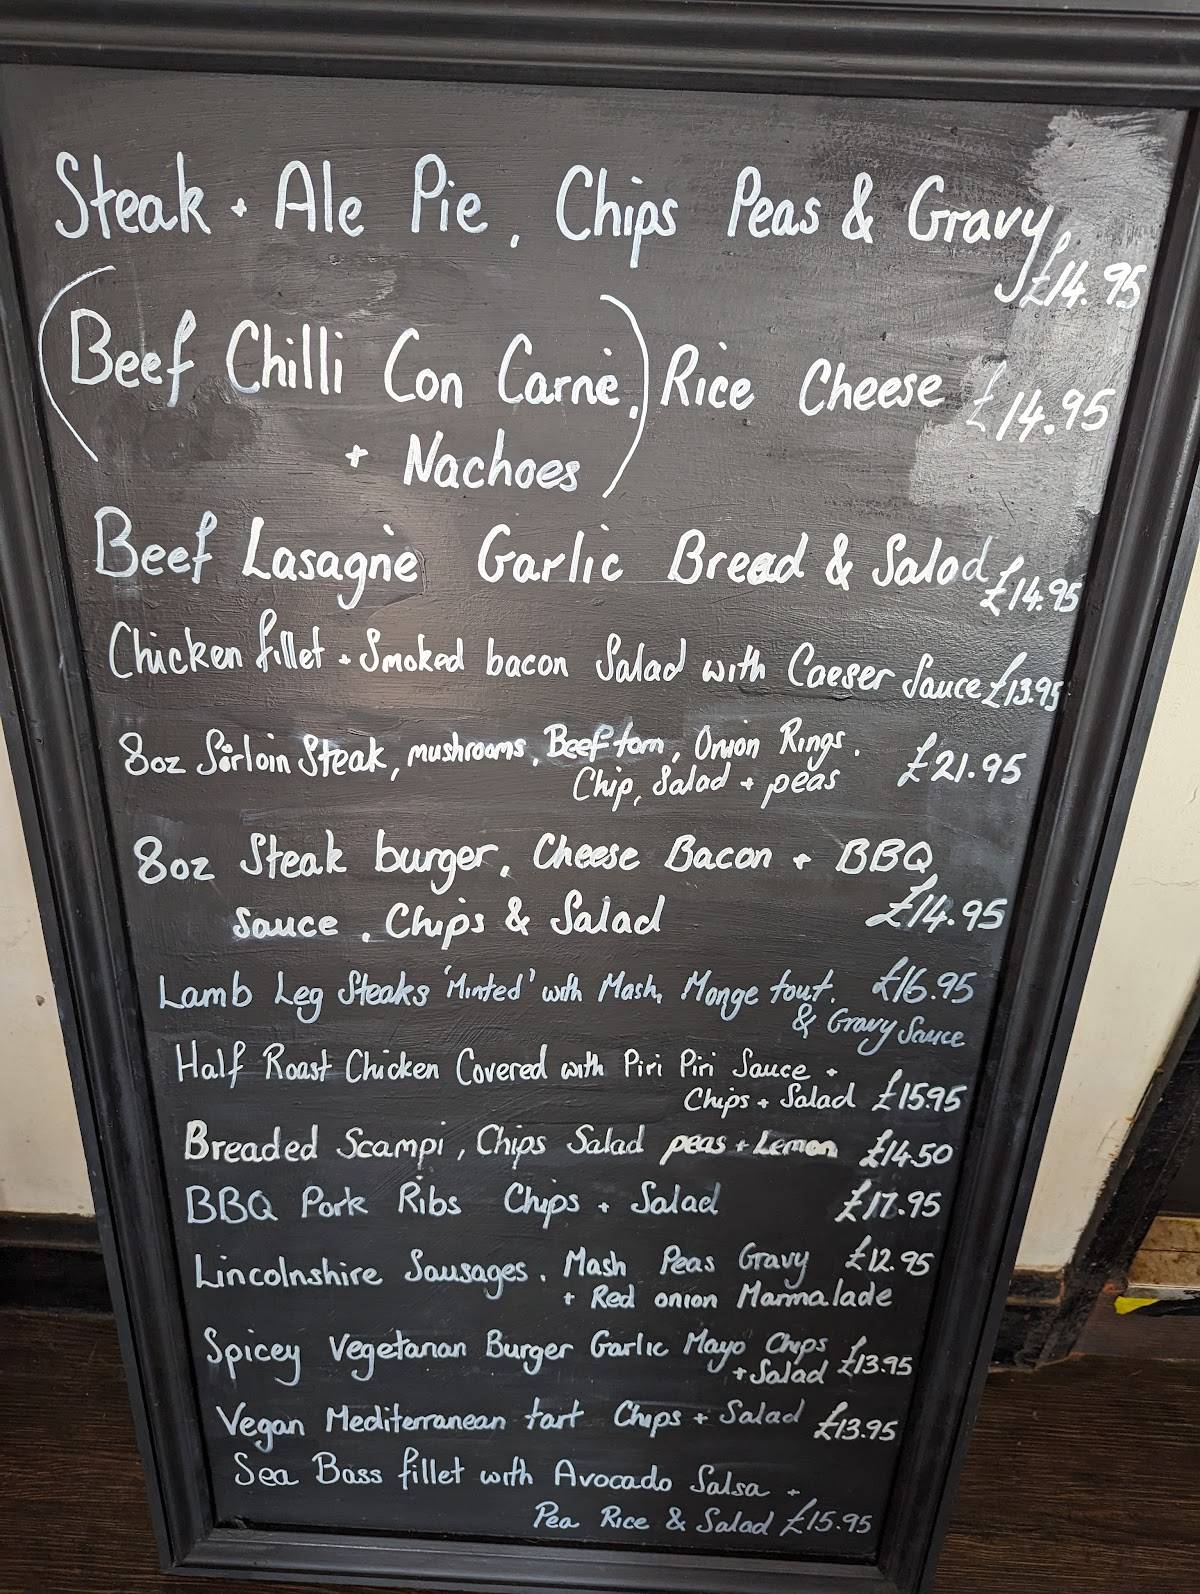 Steak + Ale Pie, Chips Peas & Gravy
£14.95
(Beef Chilli Con Carnė,) Rice Cheese £14.95
+ Nachoes
Beef Lasagnė Garlic Bread & Salad £14.95
Chicken fillet + Smoked bacon Salad with Caeser Sauce £13.95
8oz Sirloin Steak, mushrooms, Beef tom, Onion Rings, £21.95
Chip, Salad + peas
8oz Steak burger, Cheese Bacon + BBQ
Sauce, Chips & Salad £14.95
Lamb Leg Steaks 'Minted' with Mash, Monge tout. £16.95
& Gravy Sauce
Half Roast Chicken Covered with Piri Piri Sauce +
Chips + Salad £15.95
Breaded Scampi, Chips Salad peas + Lemon £14.50
BBQ Pork Ribs Chips + Salad £17.95
Lincolnshire Sausages, Mash Peas Gravy £12.95
+ Red onion Marmalade
Spicey Vegetarian Burger Garlic Mayo Chips
+ Salad £13.95
Vegan Mediterranean tart Chips + Salad £13.95
Sea Bass fillet with Avocado Salsa +
Pea Rice & Salad £15.95